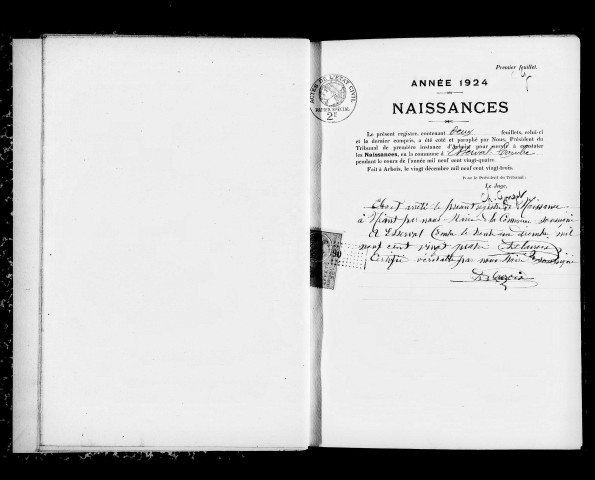 Premier feuillet.
ACTES DE L'ÉTAT CIVIL
PAPIER SPÉCIAL
2F
ANNÉE 1924
NAISSANCES
Le present registre, contenant Deux feuillets, celui-ci
et le dernier compris, a été coté et paraphé par Nous, Président du
Tribunal de première instance d'Arbois pour servir à constater
les Naissances, en la commune d'Esserval-Combe
pendant le cours de l'année mil neuf cent vingt-quatre.
Fait à Arbois, le vingt décembre mil neuf cent vingt-trois.
Pour le Président du Tribunal:
Le Juge,
Clos et arrêté le présent registre de Naissance
à Néant par nous Maire de la Commune soussigné
A Esserval Combe le trente un décembre mil
neuf cent vingt quatre
Certifié véritable par nous Maire soussigné